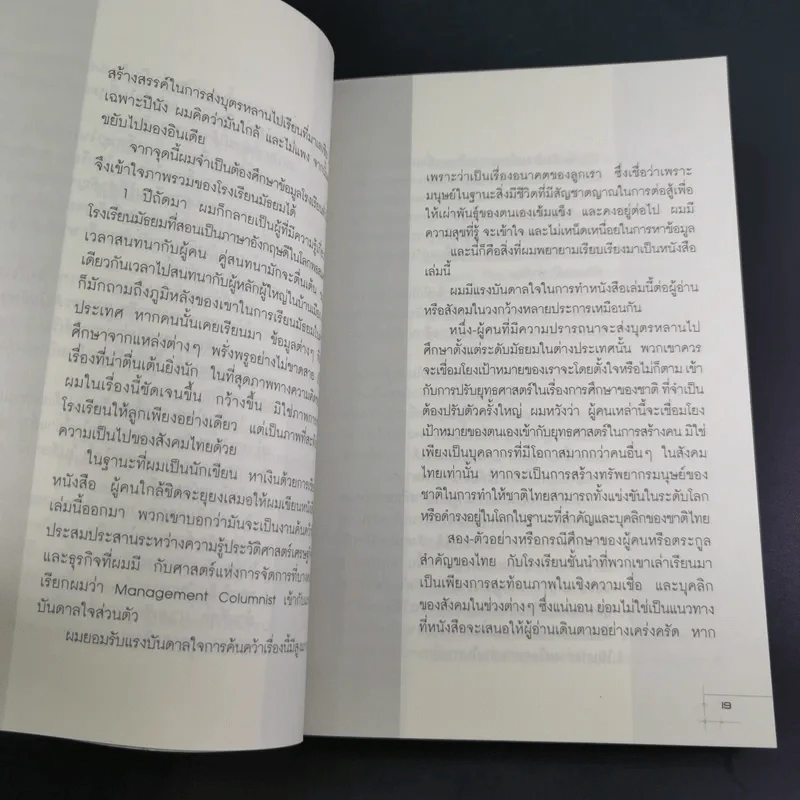 สร้างสรรค์ในการส่งบุตรหลานไปเรียนที่มาเลเซีย
เฉพาะปีนัง ผมคิดว่ามันใกล้ และไม่แพง
ขยับไปมองอินเดีย
จากจุดนี้ผมจำเป็นต้องศึกษาข้อมูลโรงเรียน
จึงเข้าใจภาพรวมของโรงเรียนมัธยมได้
1 ปีถัดมา ผมก็กลายเป็นผู้ที่มีความรู้
โรงเรียนมัธยมที่สอนเป็นภาษาอังกฤษดีในโลก
เวลาสนทนากับผู้คน คู่สนทนามักจะตื่นเต้น
เดียวกันเวลาไปสนทนากับผู้หลักผู้ใหญ่ในบ้านเมือง
ก็มักถามถึงภูมิหลังของเขาในการเรียนมัธยม
ประเทศ หากคนนั้นเคยเรียนมา ข้อมูลต่างๆ
ศึกษาจากแหล่งต่างๆ พรั่งพรูอย่างไม่ขาดสาย
เรื่องที่น่าตื่นเต้นยิ่งนัก ในที่สุดภาพทางความคิด
ผมในเรื่องนี้ชัดเจนขึ้น กว้างขึ้น มิใช่ภาพการ
โรงเรียนให้ลูกเพียงอย่างเดียว แต่เป็นภาพที่
ความเป็นไปของสังคมไทยด้วย
ในฐานะที่ผมเป็นนักเขียน หาเงินด้วยการ
หนังสือ ผู้คนใกล้ชิดจะยุยงเสมอให้ผมเขียน
เล่มนี้ออกมา พวกเขาบอกว่ามันจะเป็นงานค้นคว้า
ประสมประสานระหว่างความรู้ประวัติศาสตร์เศรษฐกิจ
และธุรกิจที่ผมมี กับศาสตร์แห่งการจัดการที่บาง
เรียกผมว่า Management Columnist เข้ากับ
บันดาลใจส่วนตัว
ผมยอมรับแรงบันดาลใจการค้นคว้าเรื่องนี้มีสูง
เพราะว่าเป็นเรื่องอนาคตของลูกเรา ซึ่งเชื่อว่าเพราะ
มนุษย์ในฐานะสิ่งมีชีวิตที่มีสัญชาตญาณในการต่อสู้เพื่อ
ให้เผ่าพันธุ์ของตนเองเข้มแข็ง และคงอยู่ต่อไป ผมมี
ความสุขที่รู้ จะเข้าใจ และไม่เหน็ดเหนื่อยในการหาข้อมูล
และนี่ก็คือสิ่งที่ผมพยายามเรียบเรียงมาเป็นหนังสือ
เล่มนี้
ผมมีแรงบันดาลใจในการทำหนังสือเล่มนี้ต่อผู้อ่าน
หรือสังคมในวงกว้างหลายประการเหมือนกัน
หนึ่ง-ผู้คนที่มีความปรารถนาจะส่งบุตรหลานไป
ศึกษาตั้งแต่ระดับมัธยมในต่างประเทศนั้น พวกเขาควร
จะเชื่อมโยงเป้าหมายของเราจะโดยตั้งใจหรือไม่ก็ตาม เข้า
กับการปรับยุทธศาสตร์ในเรื่องการศึกษาของชาติ ที่จำเป็น
ต้องปรับตัวครั้งใหญ่ ผมหวังว่า ผู้คนเหล่านี้จะเชื่อมโยง
เป้าหมายของตนเองเข้ากับยุทธศาสตร์ในการสร้างคน มิใช่
เพียงเป็นบุคลากรที่มีโอกาสมากกว่าคนอื่นๆ ในสังคม
ไทยเท่านั้น หากจะเป็นการสร้างทรัพยากรมนุษย์ของ
ชาติในการทำให้ชาติไทยสามารถทั้งแข่งขันในระดับโลก
หรือดำรงอยู่ในโลกในฐานะที่สำคัญและบุคลิกของชาติไทย
สอง-ตัวอย่างหรือกรณีศึกษาของผู้คนหรือตระกูล
สำคัญของไทย กับโรงเรียนชั้นนำที่พวกเขาเล่าเรียนมา
เป็นเพียงการสะท้อนภาพในเชิงความเชื่อ และบุคลิก
ของสังคมในช่วงต่างๆ ซึ่งแน่นอน ย่อมไม่ใช่เป็นแนวทาง
ที่หนังสือจะเสนอให้ผู้อ่านเดินตามอย่างเคร่งครัด หาก
19